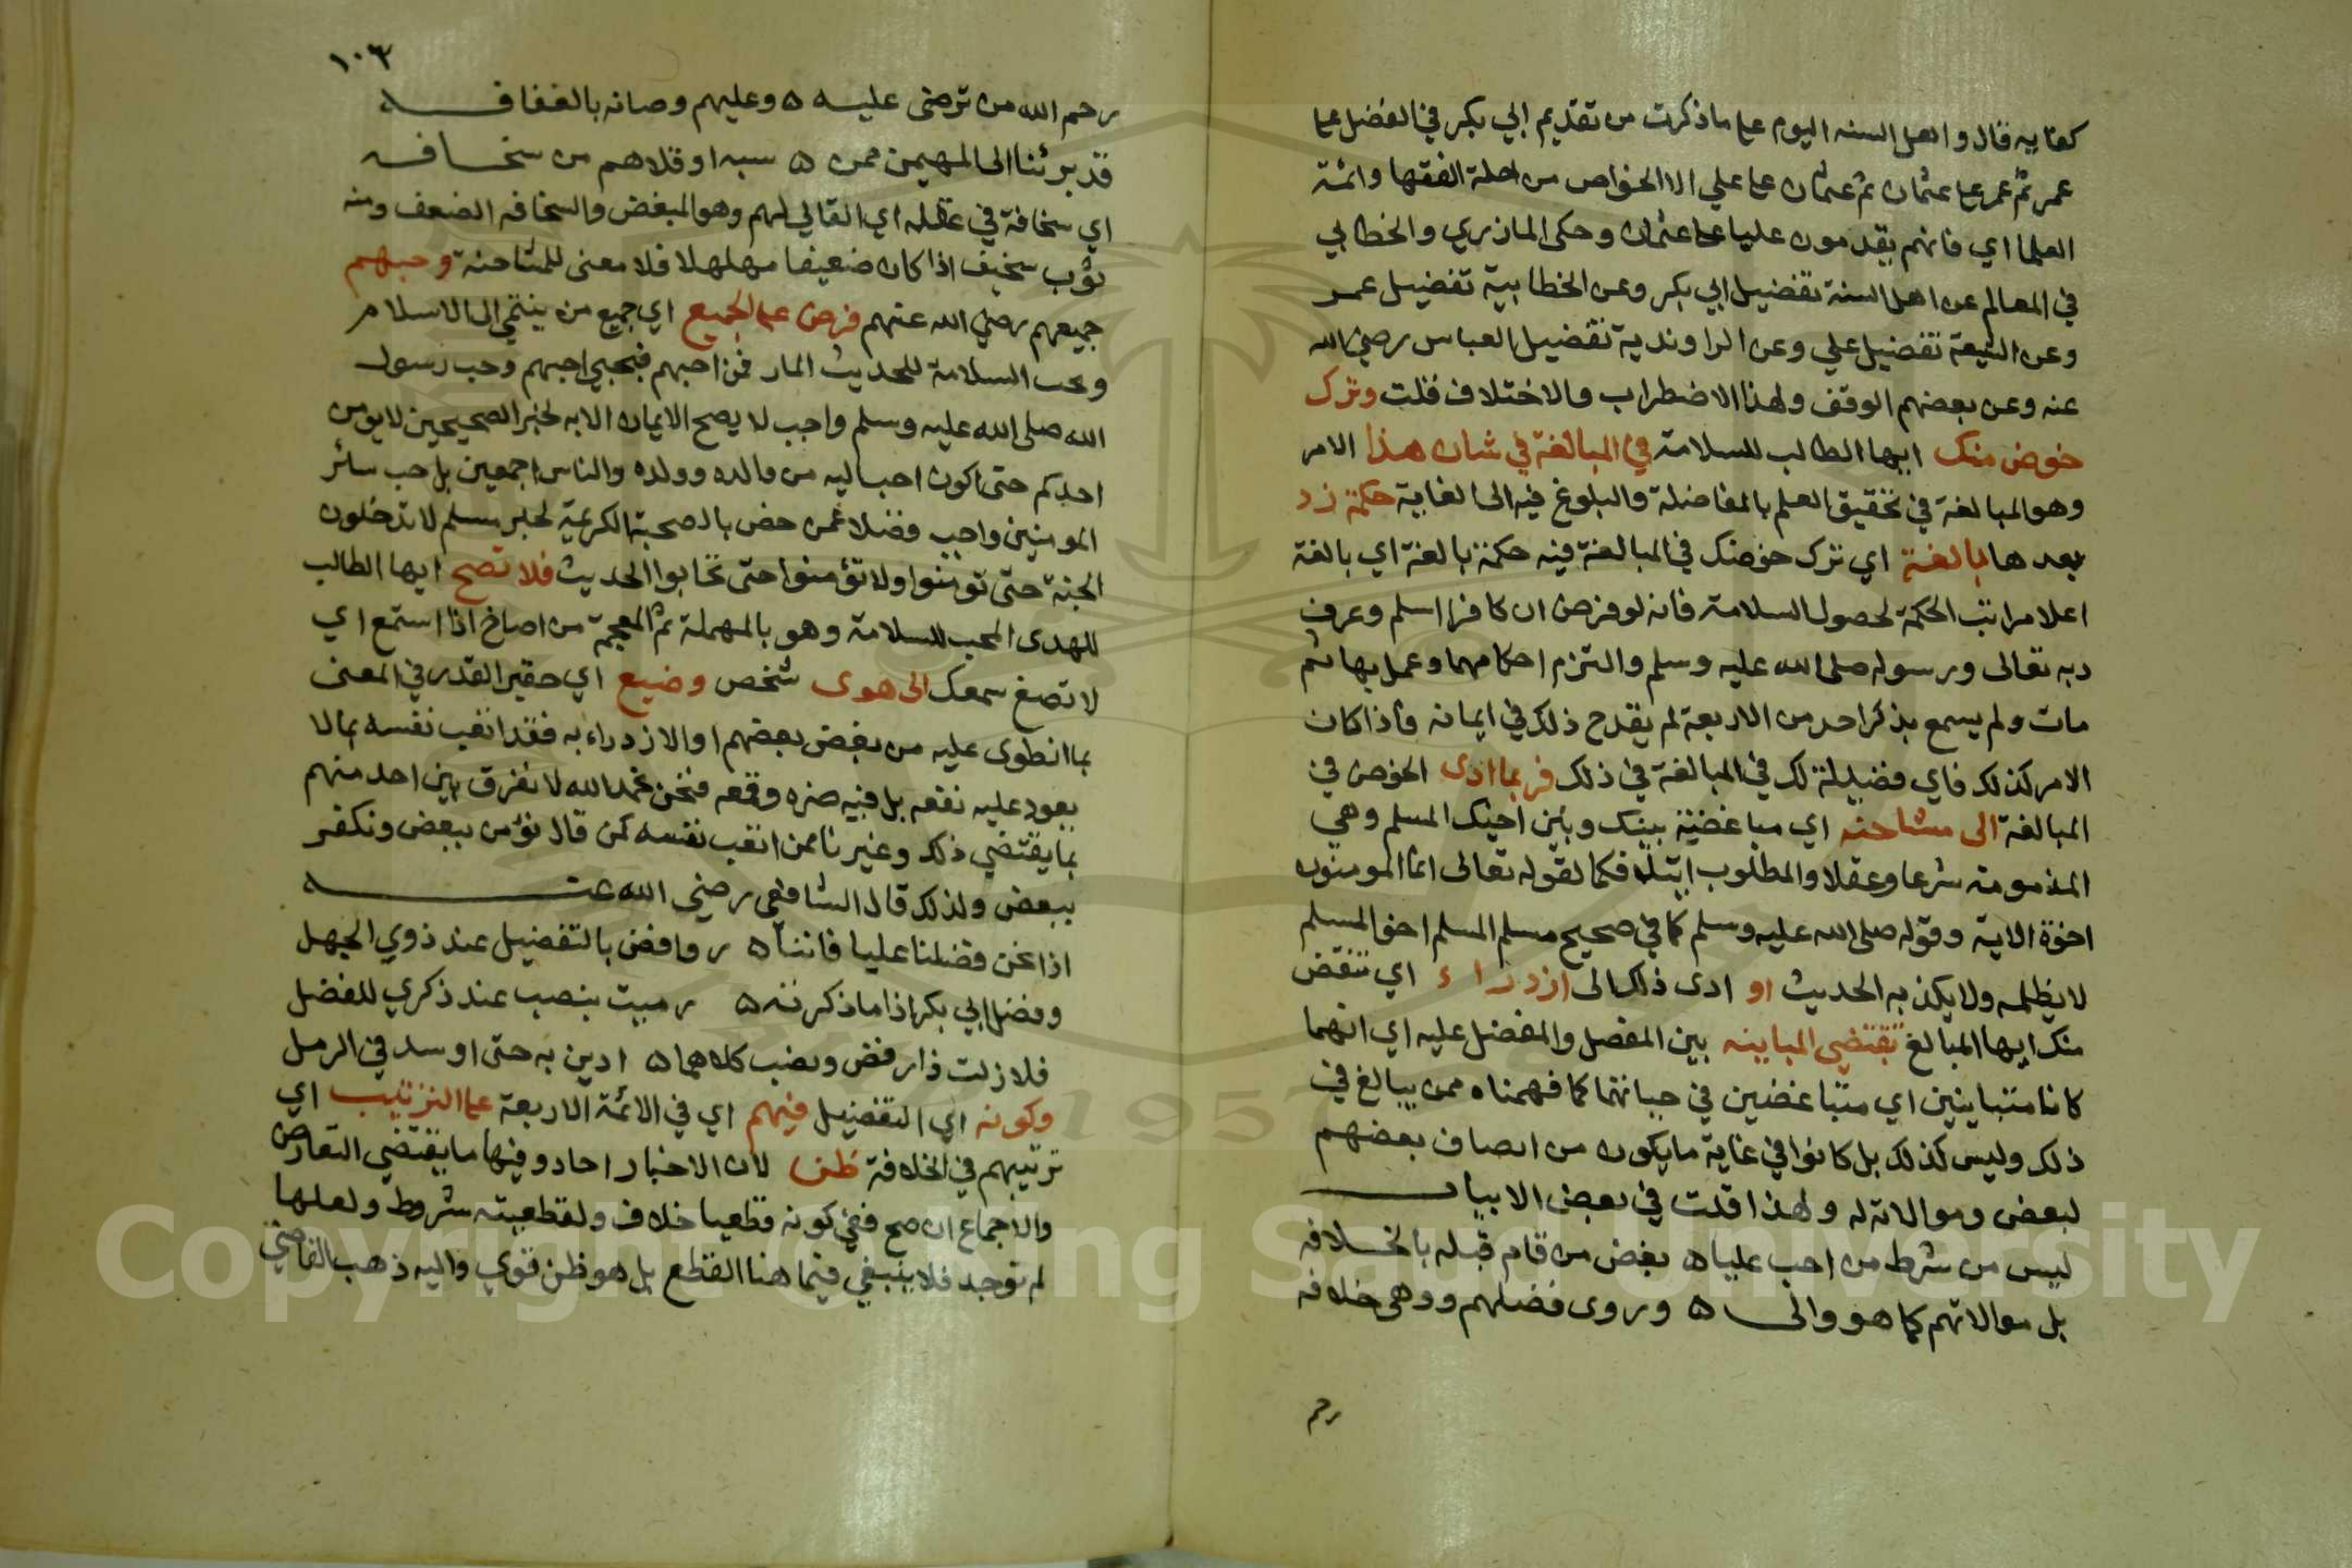 كفايه قال واهل السنه اليوم على ما ذكرت من تقديم ابي بكر في الفضل على
عمر ثم عمر على عثمان ثم عثمان على علي الا الخواص من اجلة الفقها وائمة
العلما اي فانهم يقدمون عليا على عثمان وحكى المازري والخطابي
في المعالم عن اهل السنة تفضيل ابي بكر وعن الخطابية تفضيل عمر
وعن الشيعة تفضيل علي وعن الراوندية تفضيل العباس رضي الله
عنه وعن بعضهم الوقف ولهذا الاضطراب والاختلاف قلت وترك
خوض منك ايها الطالب للسلامة في المبالغة في شان هذا الامر
وهو المبالغة في تحقيق العلم بالمفاضلة والبلوغ فيه الى الغاية حكمة زد
بعدها بالغة اي ترك خوضك في المبالغة فيه حكمة بالغة اي بالغة
اعلا مراتب الحكمة لحصول السلامة فانه لو فرض ان كافرا اسلم وعرف
ربه تعالى ورسوله صلى الله عليه وسلم والتزم احكامهما وعمل بها ثم
مات ولم يسمع بذكر احد من الاربعة لم يقدح ذلك في ايمانه واذا كان
الامر كذلك فاي فضيلة لك في المبالغة في ذلك فربما ادى الخوض في
المبالغة الى مشاحنه اي مباغضة بينك وبين اخيك المسلم وهي
المذمومة شرعا وعقلا والمطلوب ايتلاف كما لقوله تعالى انما المومنون
اخوة الاية وقوله صلى الله عليه وسلم كما في صحيح مسلم المسلم اخو المسلم
لا يظلمه ولا يكذبه الحديث او ادى ذلك الى ازدراء اي تنقض
منك ايها المبالغ تقتضي المباينه بين المفضل والمفضل عليه اي انهما
كانا متباينين اي متباغضين في حياتهما كما فهمناه ممن يبالغ في
ذلك وليس كذلك بل كانوا في غاية ما يكون من انصاف بعضهم
لبعض وموالاته له ولهذا قلت في بعض الابيات
ليس من شرط من احب عليا ه بغض من قام قبله بالخلافه
بل موالاتهم كما هو والى ه وروى فضلهم ووهى خلافه
رحم
١٠٣
رحم الله من ترضى عليه ه وعليهم وصانه بالغفافه
قد برئنا الى المهيمن ممن ه سبه او قلاهم من سخافه
اي سخافة في عقله اي القالي لهم وهو المبغض والسخافه الضعف ومنه
ثوب سخيف اذا كان ضعيفا مهلهلا فلا معنى للمشاحنة وحبهم
جميعهم رضي الله عنهم فرض على الجميع اي جميع من ينتمي الى الاسلام
ويحب السلامة للحديث المار فمن احبهم فبحبي احبهم وحب رسول
الله صلى الله عليه وسلم واجب لا يصح الايمان الا به لخبر الصحيحين لا يومن
احدكم حتى اكون احب اليه من والده وولده والناس اجمعين بل حب سائر
المومنين واجب فضلا عمن خص بالصحبة الكريمة لخبر مسلم لا تدخلون
الجنة حتى تومنوا ولا تؤمنوا حتى تحابوا الحديث فلا تصخ ايها الطالب
للهدى المحب للسلامة وهو بالمهملة ثم المعجمة من اصاخ اذا استمع اي
لا تصغ سمعك الى هوى شخص وضيع اي حقير القدر في المعنى
بما انطوى عليه من بغض بعضهم او الازدراء به فقد اتعب نفسه بما لا
يعود عليه نفعه بل فيه ضره وقمعه فنحن بحمد الله لا نفرق بين احد منهم
بما يقتضي ذلك وغيرنا ممن اتعب نفسه كمن قال نؤمن ببعض ونكفر
ببعض ولذلك قال الشافعي رضي الله عنه
اذا نحن فضلنا عليا فاننا ه روافض بالتفضيل عند ذوي الجهل
وفضل ابي بكر اذا ما ذكرته ه رميت بنصب عند ذكري للفضل
فلا زلت ذا رفض ونصب كلاهما ه ادين به حتى اوسد في الرمل
وكونه اي التفضيل فيهم اي في الائمة الاربعة على الترتيب اي
ترتيبهم في الخلافة ظن لان الاخبار احاد وفيها ما يقتضي التعارض
والاجماع ان صح ففي كونه قطعيا خلاف ولقطعيته شروط ولعلها
لم توجد فلا ينبغي فيما هنا القطع بل هو ظن قوي واليه ذهب القاضي
Copyright © King Saud University
1957